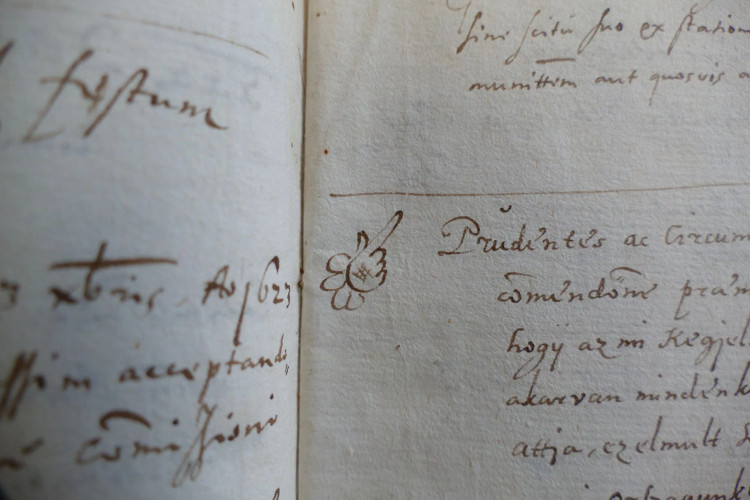 festum
xbris. Ao 1623
acceptando
com̄issioni
sine scitu suo ex station
munittem aut quosvis a
Prudentes ac Circum
com̄endōne præm
hogÿ az mi Kegjel
akarvan mindenk
attja, ezelmult